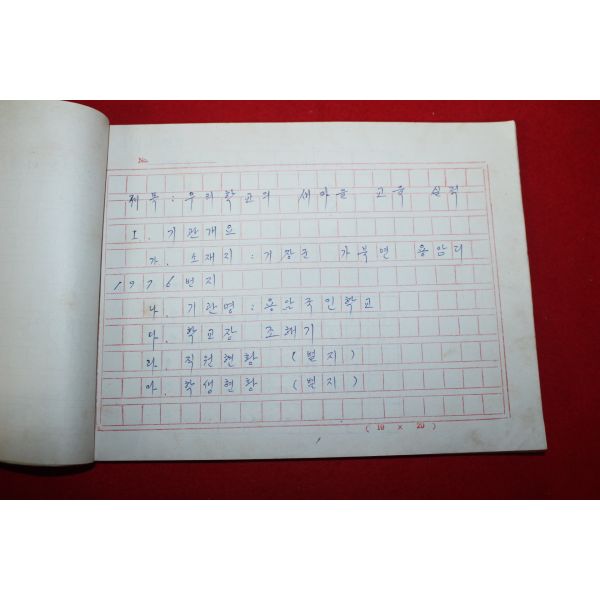 No.
제목 : 우리학교의 새마을 교육 실적
I. 기관개요
가. 소재지 : 거창군 가북면 용암리
1976번지
나. 기관명 : 용암국민학교
다. 학교장 조채기
라. 직원현황 (별지)
마. 학생현황 (별지)
(10 x 20)